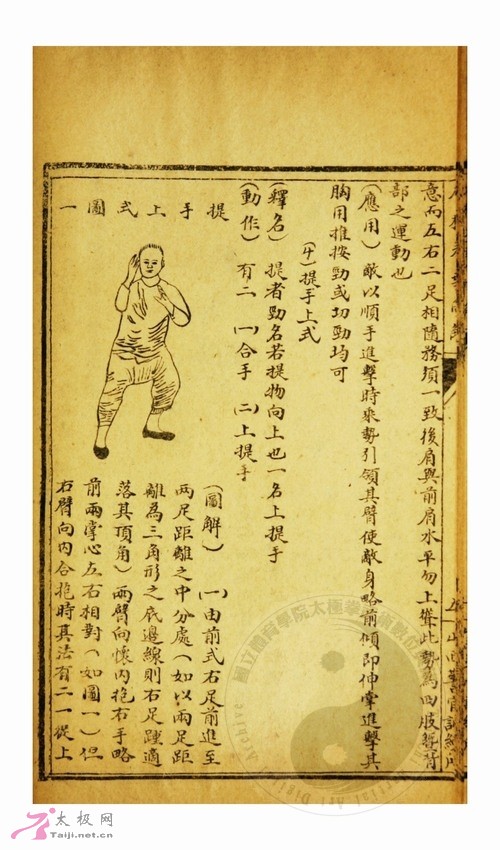 意而左右二足相隨務須一致後肩與前肩水平勿上聳此勢為四肢暨背
部之運動也
(應用)敵以順手進擊時乘勢引領其臂使敵身略前傾即伸掌進擊其
胸用推按勁或切勁均可
(十)提手上式
(釋名)提者勁名若提物向上也一名上提手
(動作)有二 (一)合手 (二)上提手
提手上式圖一
(圖解)(一)由前式右足前進至
兩足距離之中分處(如以兩足距
離為三角形之底邊線則右足踵適
落其頂角)兩臂向懷內抱右手略
前兩掌心左右相對(如圖一)但
右臂向內合抱時其法有二一從上
國立體育學院太極拳
太极网
Taiji.net.cn